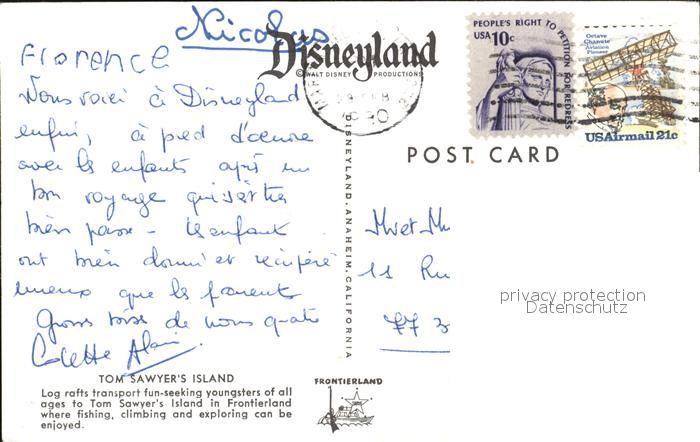 Nicolas
Florence
Disneyland
© WALT DISNEY PRODUCTIONS
Nous voici à Disneyland
enfin, à pied d'oeuvre
avec les enfants après un
bon voyage qui s'est très
bien passé - les enfants
ont bien dormi et récupéré
mieux que les parents
Grosses bises de nous quatre
Colette Alain.
TOM SAWYER'S ISLAND
Log rafts transport fun-seeking youngsters of all
ages to Tom Sawyer's Island in Frontierland
where fishing, climbing and exploring can be
enjoyed.
DISNEYLAND, ANAHEIM, CALIFORNIA
FRONTIERLAND
PEOPLE'S RIGHT TO PETITION FOR REDRESS
USA 10c
Octave
Chanute
Aviation
Pioneer
USAirmail 21c
POST CARD
M et M
11 Ru
77 3
privacy protection
Datenschutz